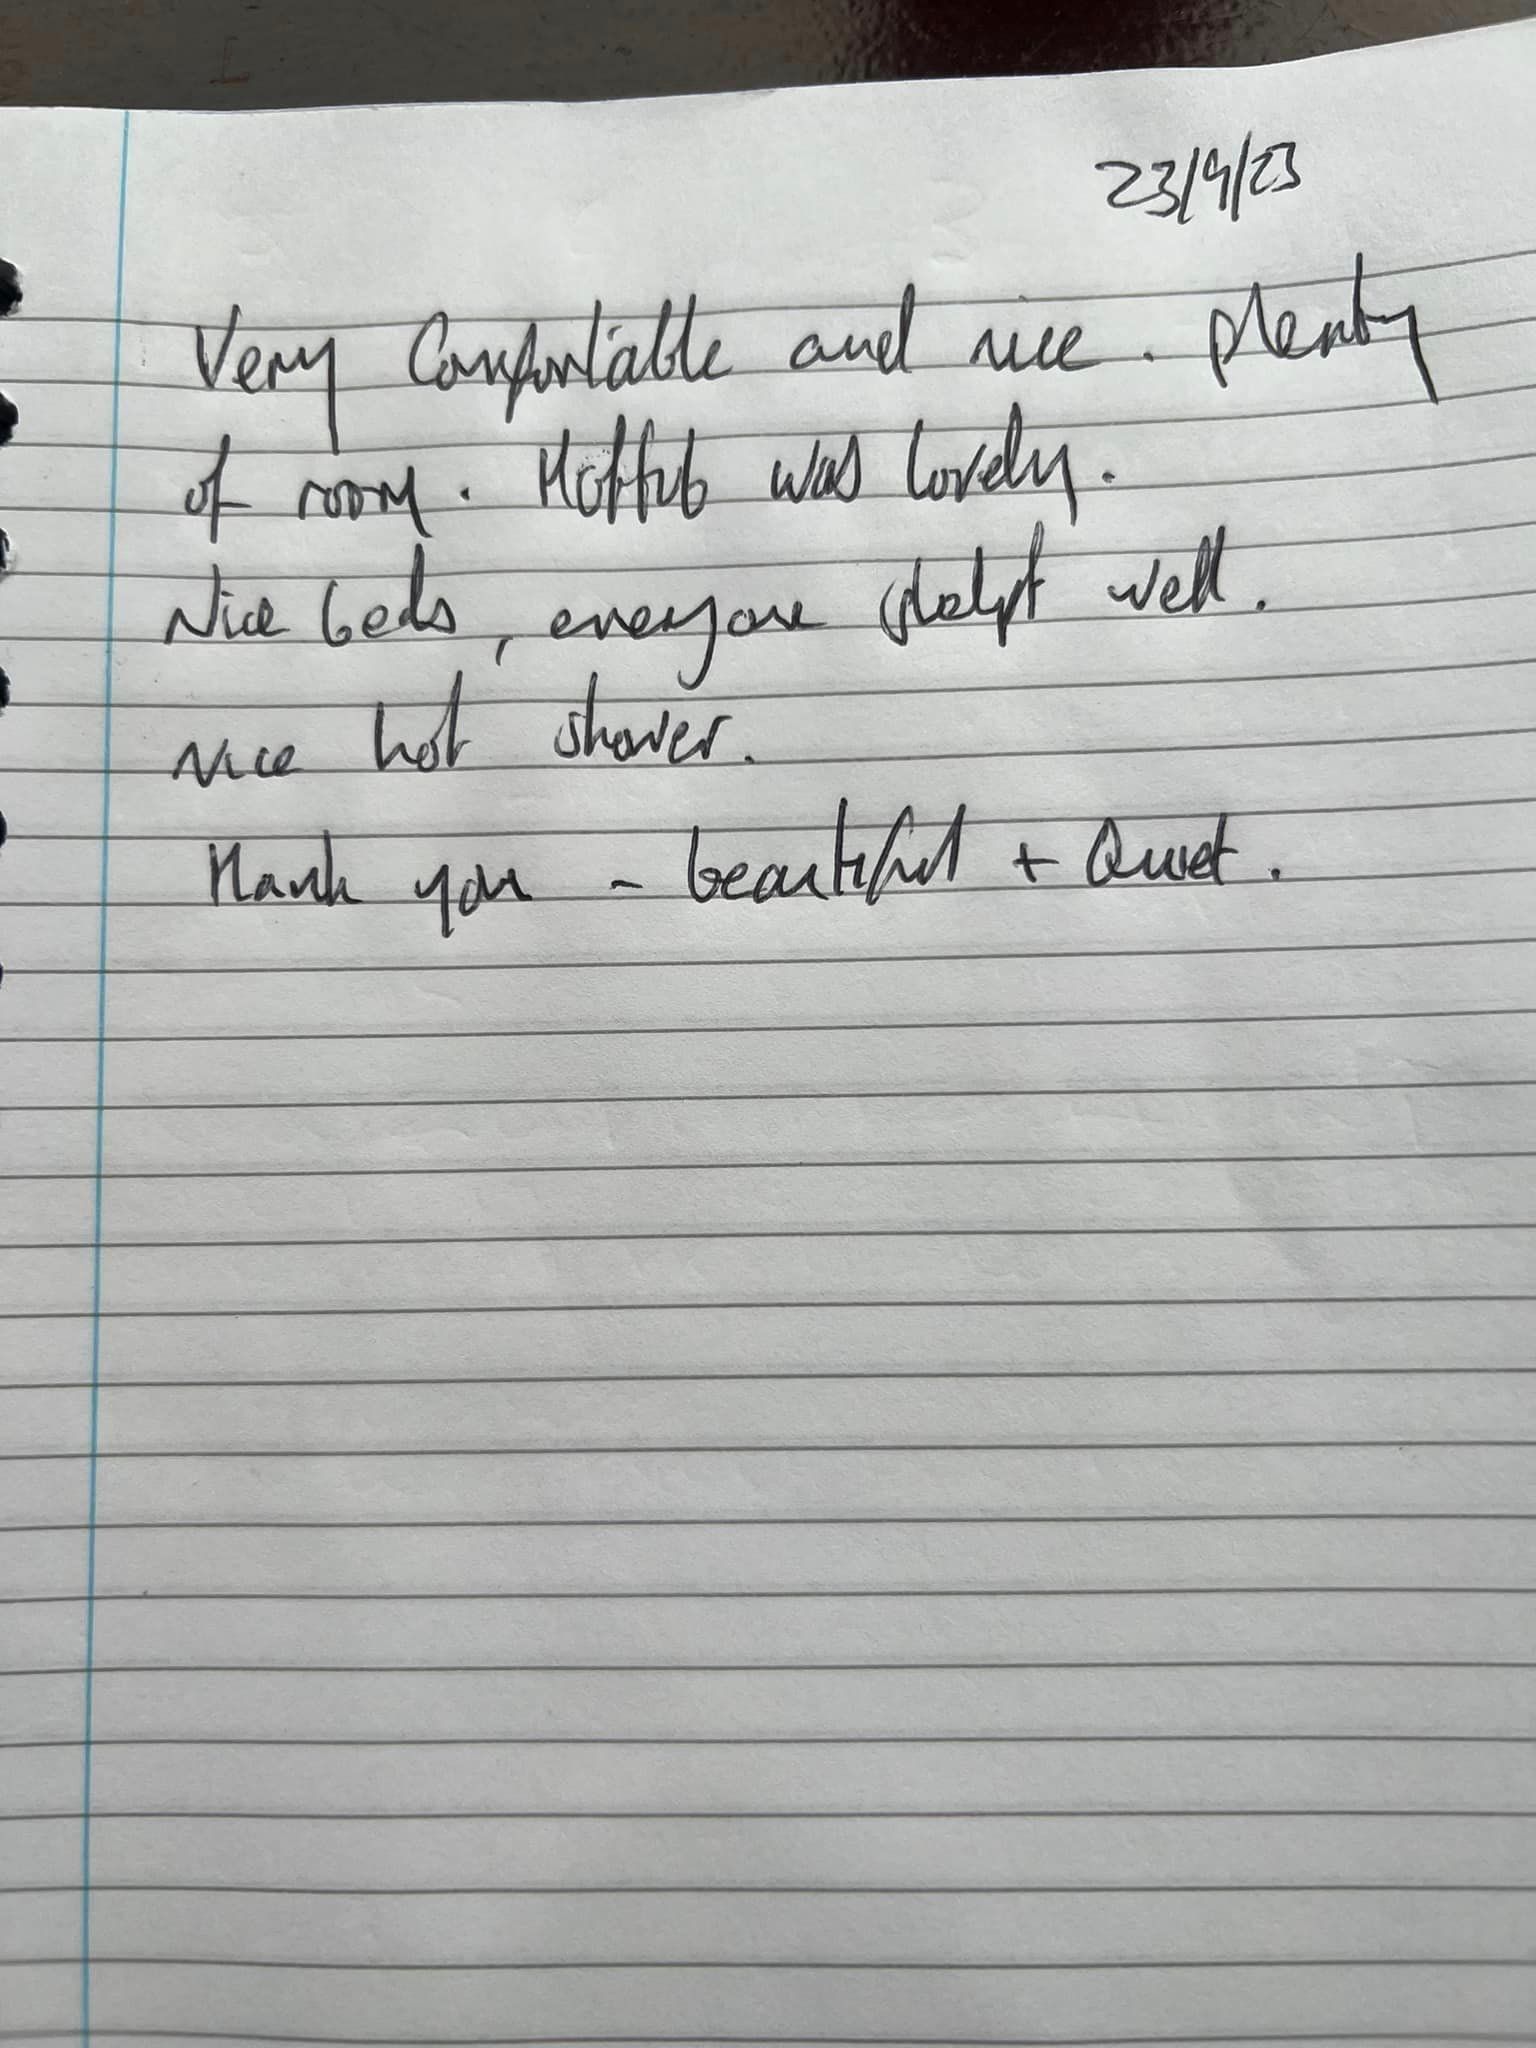 23/9/23
Very Comfortable and nice. Plenty
of room. Hottub was lovely.
Nice beds, everyone slept well.
Nice hot shower.
Thank you - beautiful + Quiet.